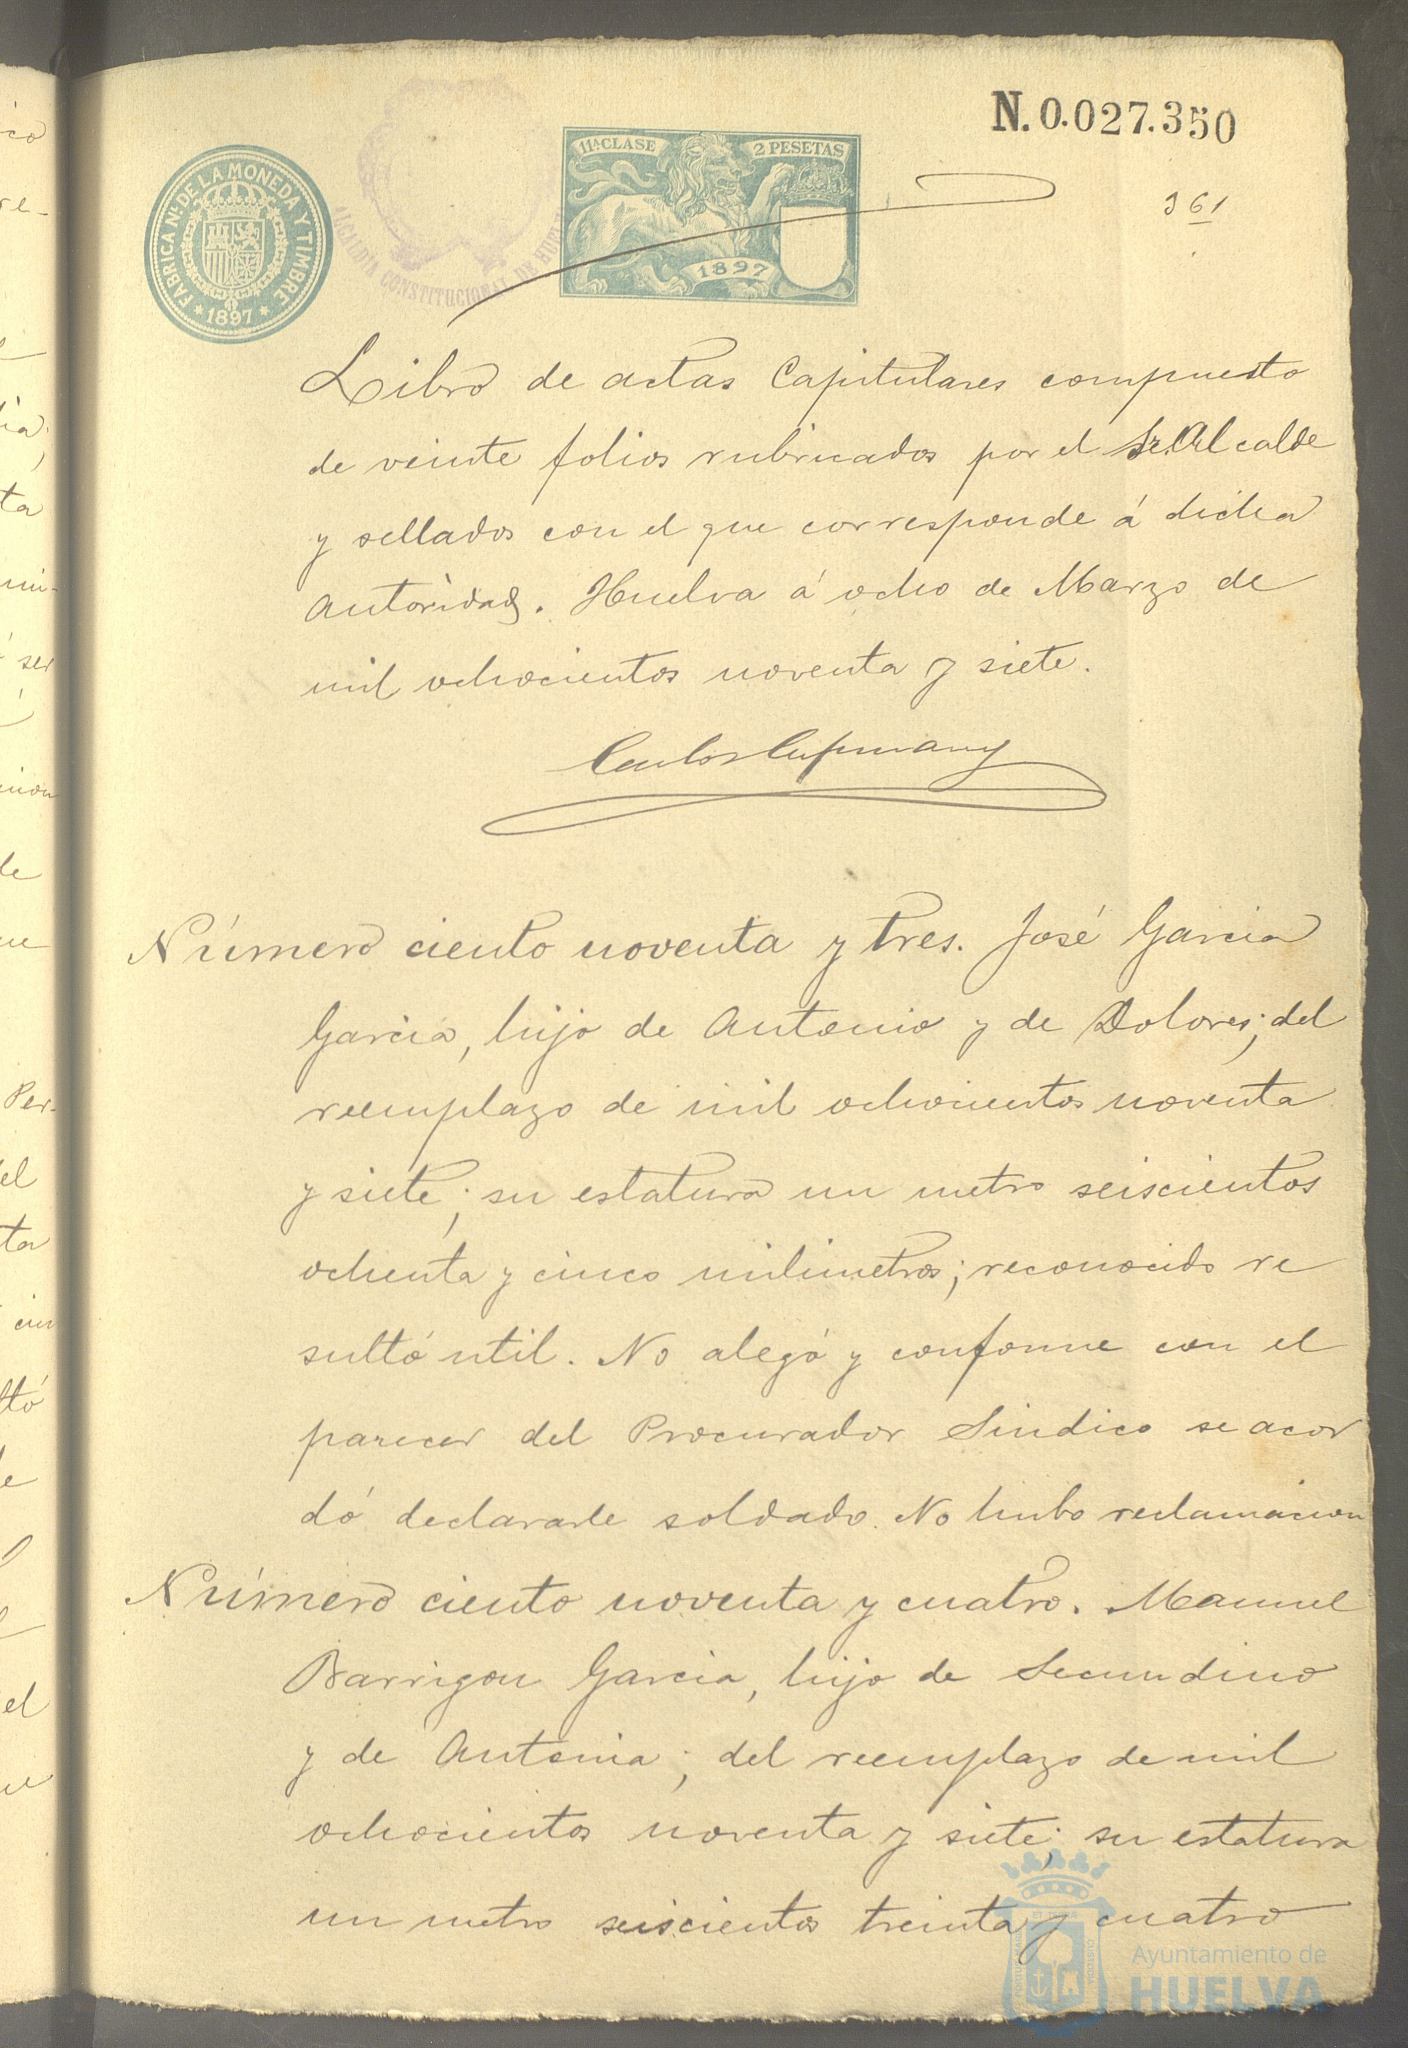 N. 0.027.350
361
FABRICA Nl. DE LA MONEDA Y TIMBRE
* 1897 *
ALCALDIA CONSTITUCIONAL DE HUELVA
11ª CLASE
2 PESETAS
1897
Libro de actas Capitulares compuesto
de veinte folios rubricados por el Sr. Alcalde
y sellados con el que corresponde á dicha
Autoridad. Huelva á ocho de Marzo de
mil ochocientos noventa y siete.
Carlos
Número ciento noventa y tres. José Garcia
Garcia, hijo de Antonio y de Dolores; del
reemplazo de mil ochocientos noventa
y siete; su estatura un metro seiscientos
ochenta y cinco milimetros; reconocido re
sultó util. No alegó y conforme con el
parecer del Procurador Sindico se acor
dó declararle soldado. No hubo reclamacion
Número ciento noventa y cuatro. Manuel
Barrigon Garcia, hijo de Secundino
y de Antonia; del reemplazo de mil
ochocientos noventa y siete; su estatura
un metro seiscientos treinta y cuatro
Ayuntamiento de
HUELVA